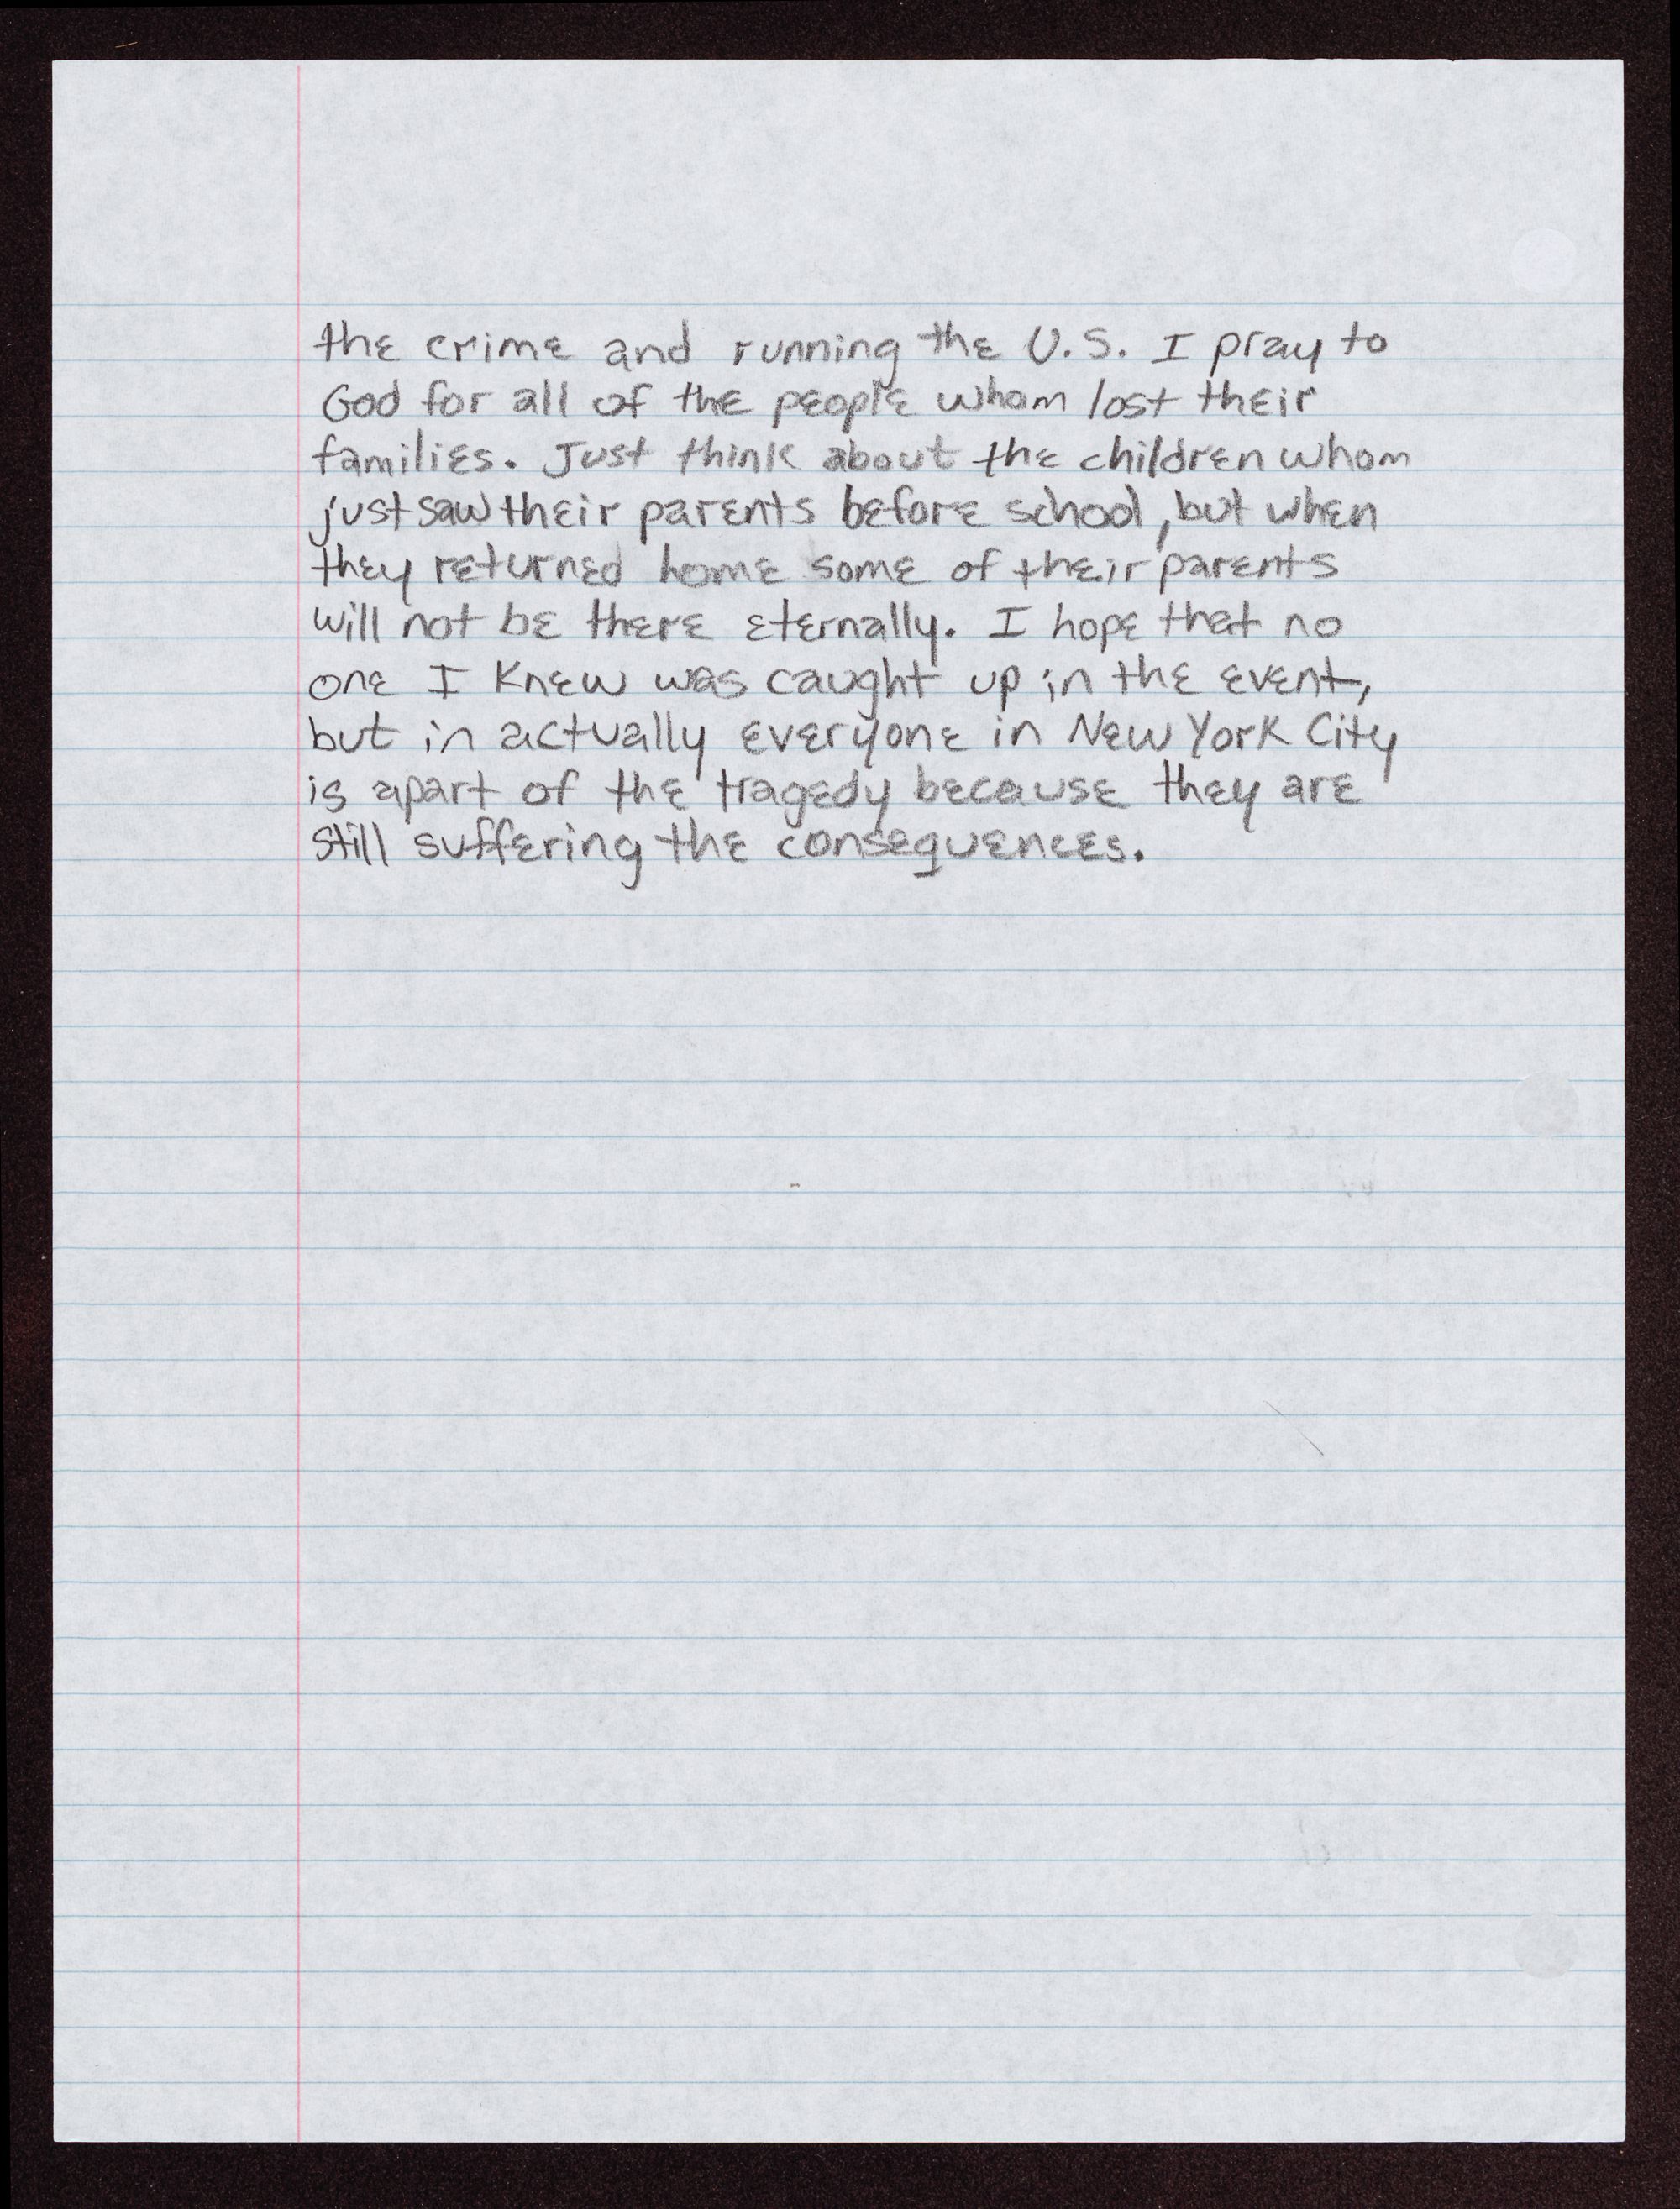 the crime and running the U.S. I pray to
God for all of the people whom lost their
families. Just think about the children whom
just saw their parents before school, but when
they returned home some of their parents
will not be there eternally. I hope that no
one I knew was caught up in the event,
but in actually everyone in New York City
is apart of the tragedy because they are
still suffering the consequences.